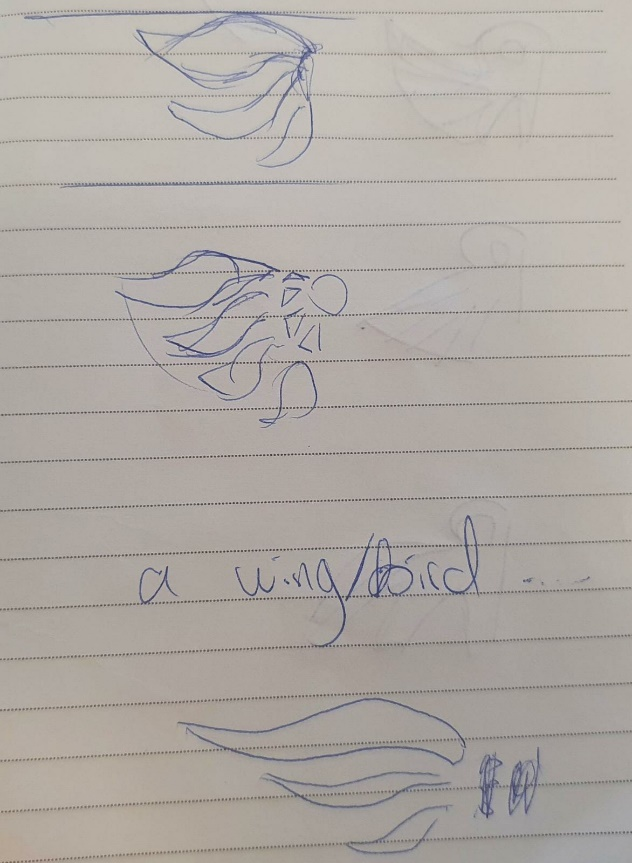 a wing/bird .....